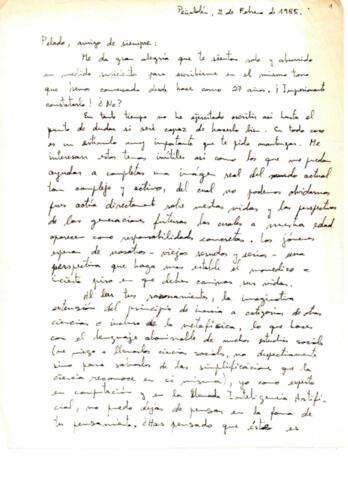 Peñalolén, 2 de Febrero de 1985.
1
Pelado, amigo de siempre:
Me da gran alegría que te sientas solo y aburrido
en medida suficiente para escribirme en el mismo tono
que hemos conversado desde hace como 27 años. ¡Impresionante
constatarlo! ¿No?
En tanto tiempo no he ejercitado escribir así hasta el
punto de dudar si seré capaz de hacerlo bien. En todo caso
es un estímulo muy importante que te pido mantengas. Me
interesan estos temas inútiles así como los que me puedan
ayudar a completar una imagen real del mundo actual
tan complejo y activo, del cual no podemos olvidarnos
pues actúa directamente sobre nuestras vidas y las perspectivas
de las generaciones futuras las cuales a nuestra edad
aparecen como responsabilidades concretas. Los jóvenes
esperan de nosotros - viejos sesudos y serios - una
perspectiva que haga más estable el movedizo e
incierto piso en que deben caminar sus vidas.
Al leer tus razonamientos, la imaginativa
extensión del principio de a categorías de otras
ciencias e incluso de la metafísica, lo que haces
con el lenguaje abominable de nuestros estudios sociales
(me niego a llamarlos ciencia sociales, no despectivamente
sino para salvarlos de las simplificaciones que la
ciencia reconoce en sí misma), yo como experto
en computación y en la llamada Inteligencia Artifi-
cial, no puedo dejar de pensar en la forma de
tu pensamiento. ¿Has pensado que éste es